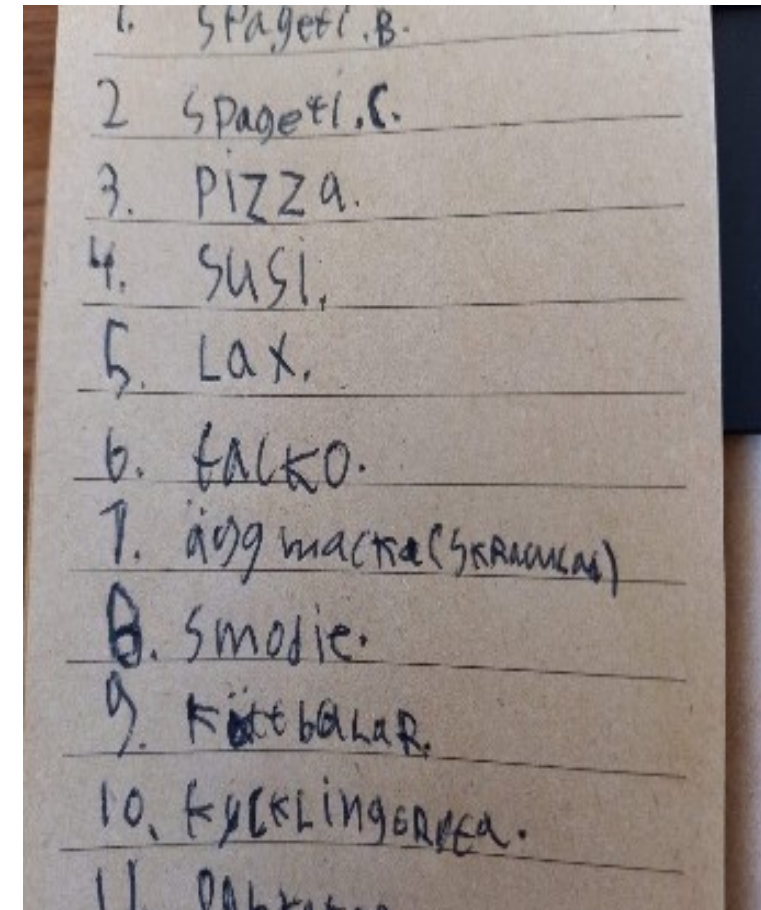 1. Spageti.B.
2 Spageti.C.
3. PIZZA.
4. SUSI.
5. Lax.
6. talko.
7. ägg macka
8. Smodie.
9. köttbalar.
10. kyckling
11.